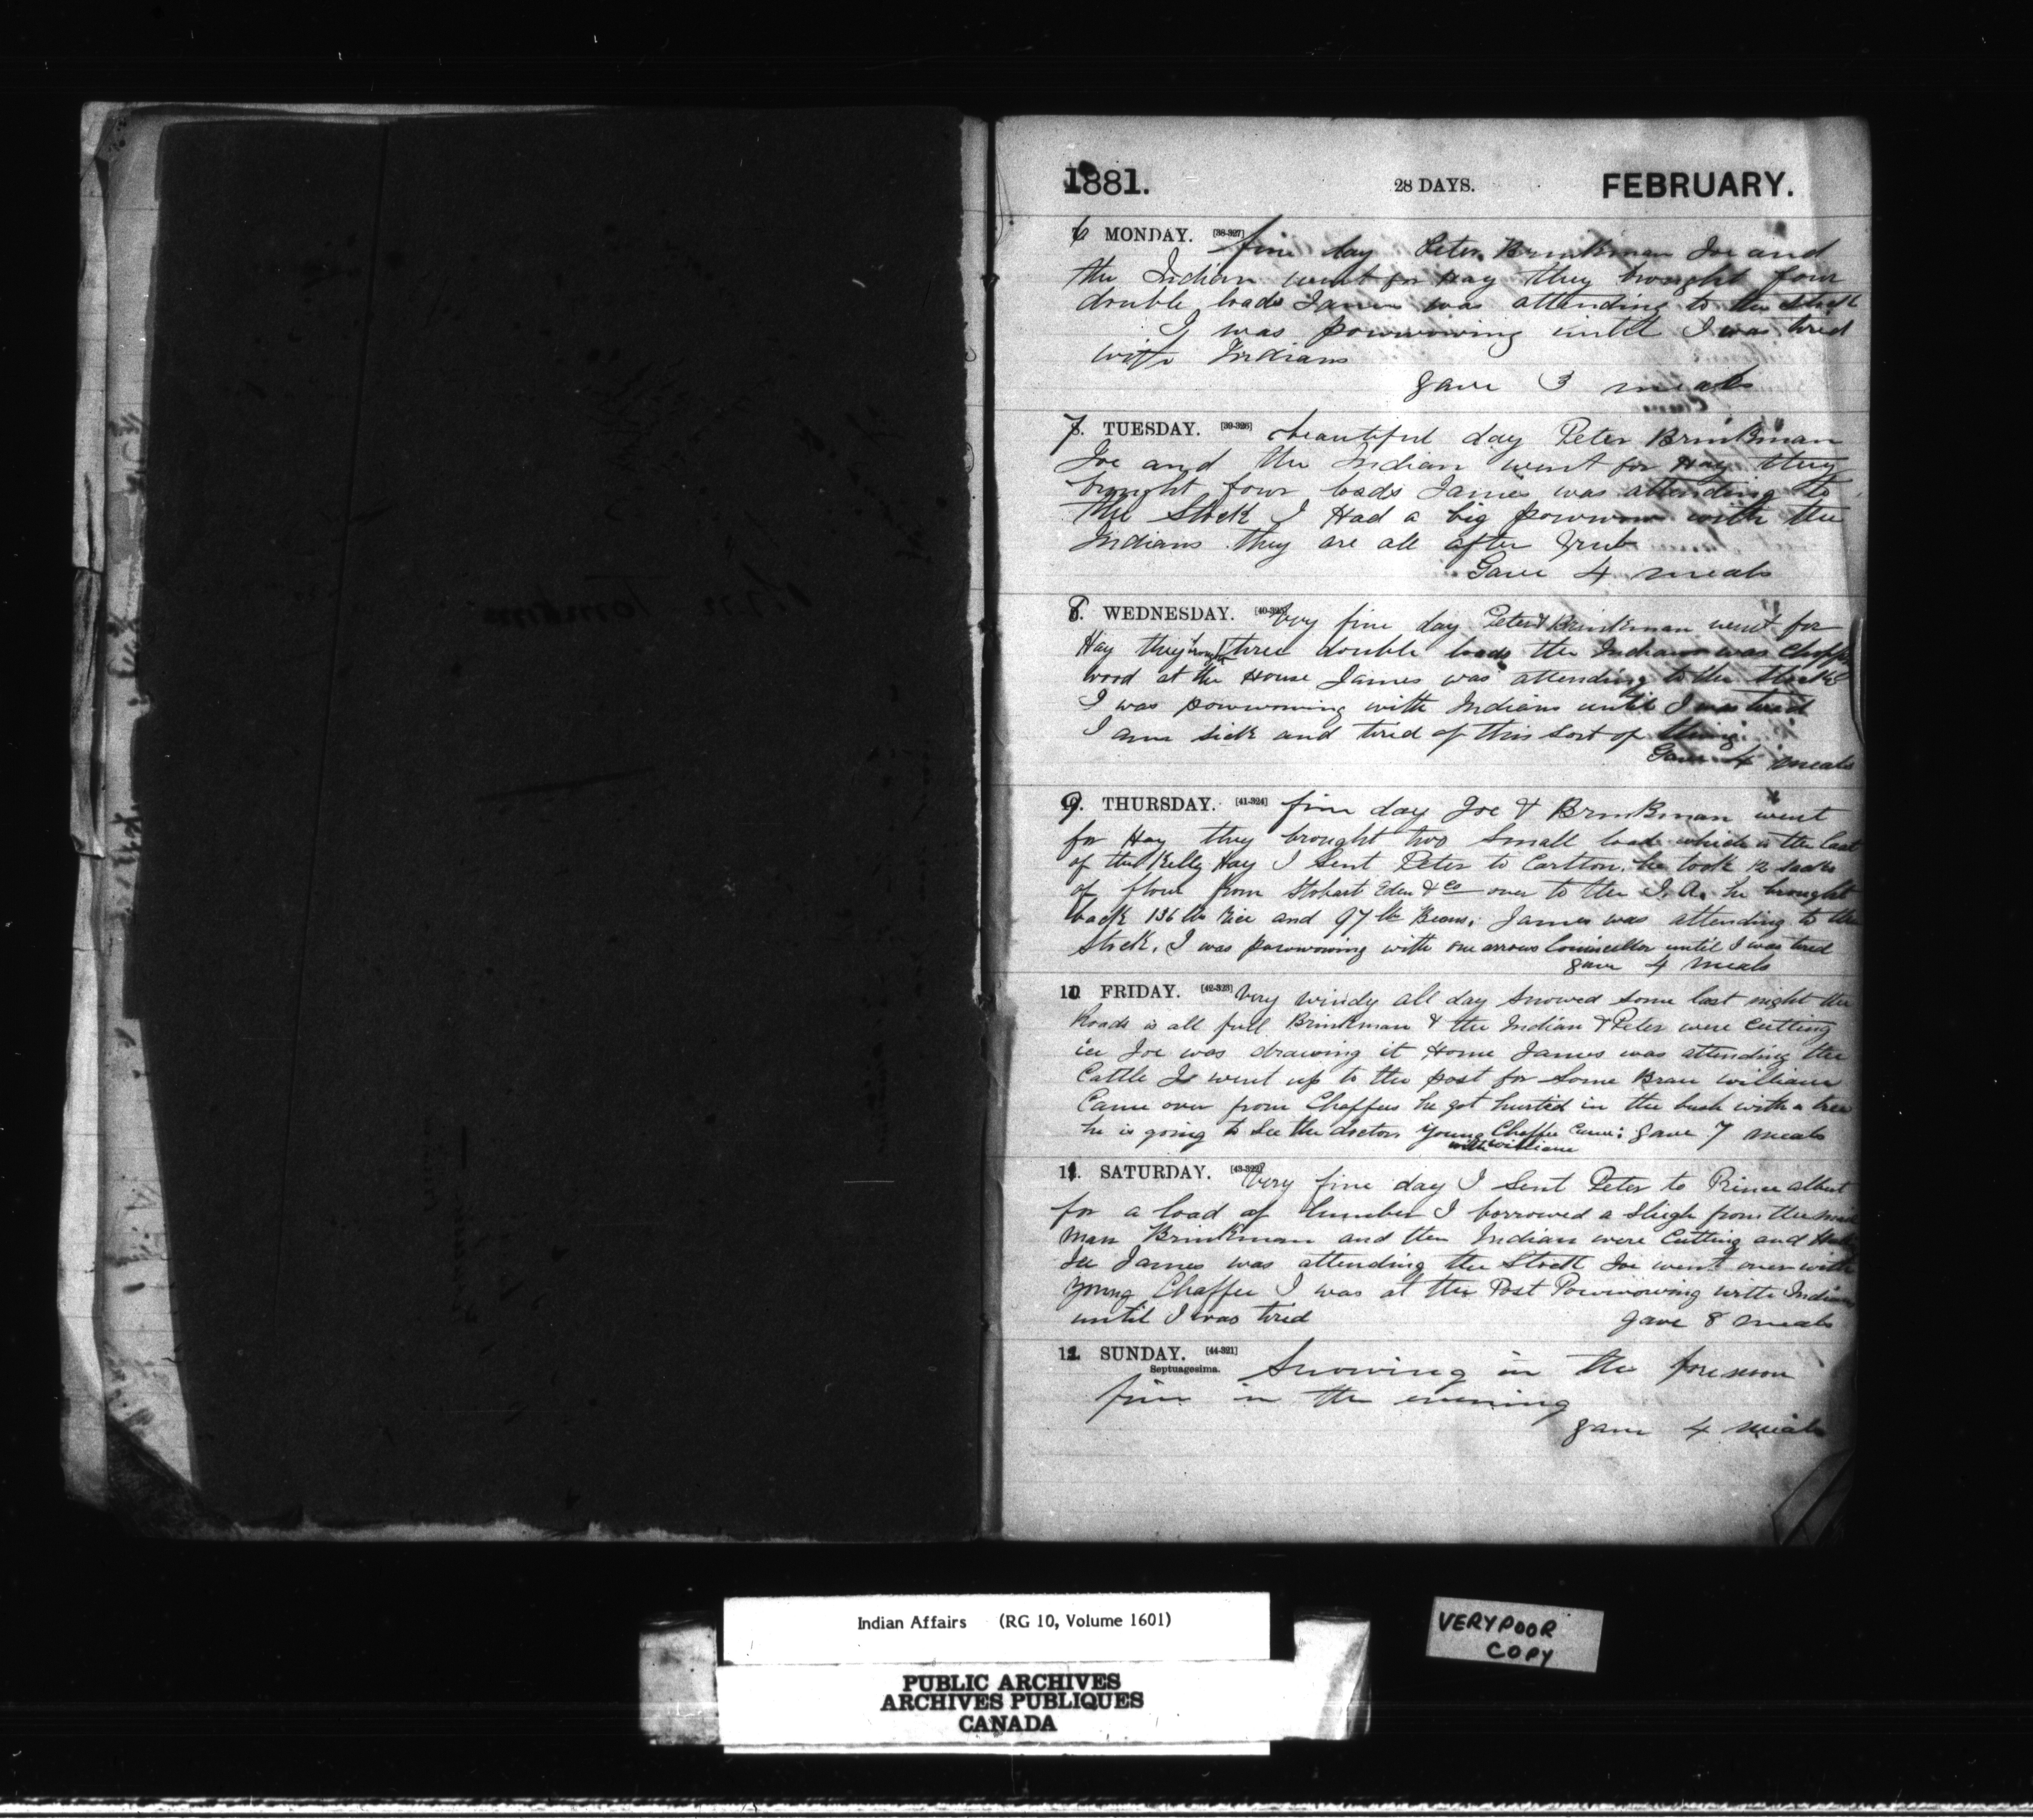 1881. 28 DAYS. FEBRUARY.
6 MONDAY. [38-327] fine day Peter Brinkman Joe and
the Indian went for Hay they brought four
double loads James was attending to the stock
I was powwowing until I was tired
with Indians
gave 3 meals
7. TUESDAY. [39-326] beautiful day Peter Brinkman
Joe and the Indian went for Hay they
brought four loads James was attending to
the Stock I Had a big powwow with the
Indians they are all after Grub
Gave 4 meals
8. WEDNESDAY. [40-325] Very fine day Peter & Brinkman went for
Hay they brought three double loads the Indian was
wood at the House James was attending to the Stock
I was powwowing with Indians until I was tired
I am sick and tired of this sort of thing
Gave 4 meals
9. THURSDAY. [41-324] fine day Joe & Brinkman went
for Hay they brought two small loads which is the last
of the Kelly Hay I Sent Peter to Carlton. he took 12 sacks
of flour from Stobart Eden & Co over to the I. A. he brought
back 136 lb Rice and 97 lb Beans. James was attending to the
Stock. I was powwowing with one arrows Councellor until I was tired
gave 4 meals
10 FRIDAY. [42-323] Very windy all day Snowed some last night the
Roads is all full Brinkman & the Indian & Peter were Cutting
ice Joe was drawing it Home James was attending the
Cattle I went up to the post for Some Bran william
Came over from Chaffees he got hurted in the bush with a tree
he is going to See the doctors young Chaffee Came: gave 7 meals
with william
11. SATURDAY. [43-322] Very fine day I Sent Peter to Prince albert
for a load of lumber I borrowed a Sleigh from the
man Brinkman and the Indian were Cutting and
Ice James was attending the Stock Joe went over with
young Chaffee I was at the Post Powwowing with Indians
until I was tired gave 8 meals
12. SUNDAY. [44-321]
Septuagesima. Snowing in the forenoon
fine in the evening
gave 4 meals
Indian Affairs (RG 10, Volume 1601)
PUBLIC ARCHIVES
ARCHIVES PUBLIQUES
CANADA
VERY POOR
COPY